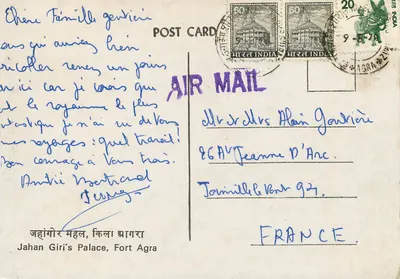 Chère Famille gontière
POST CARD
60
भारत INDIA
60
भारत INDIA
20
INDIA
AGRA
AIR MAIL
ous qui auriez bien
ricoller renez un jour
ici car je crois que
est le royaume le plus
antastique j'n'ai vu de tous
mes voyages : quel travail !
Bon courage à vous trois.
André Bertrand
Mr et Mrs Alain Gontière
26 Av Jeanne D'Arc.
Joinville le Pont 94.
FRANCE.
जहांगीर महल, किला आगरा
Jahan Giri's Palace, Fort Agra